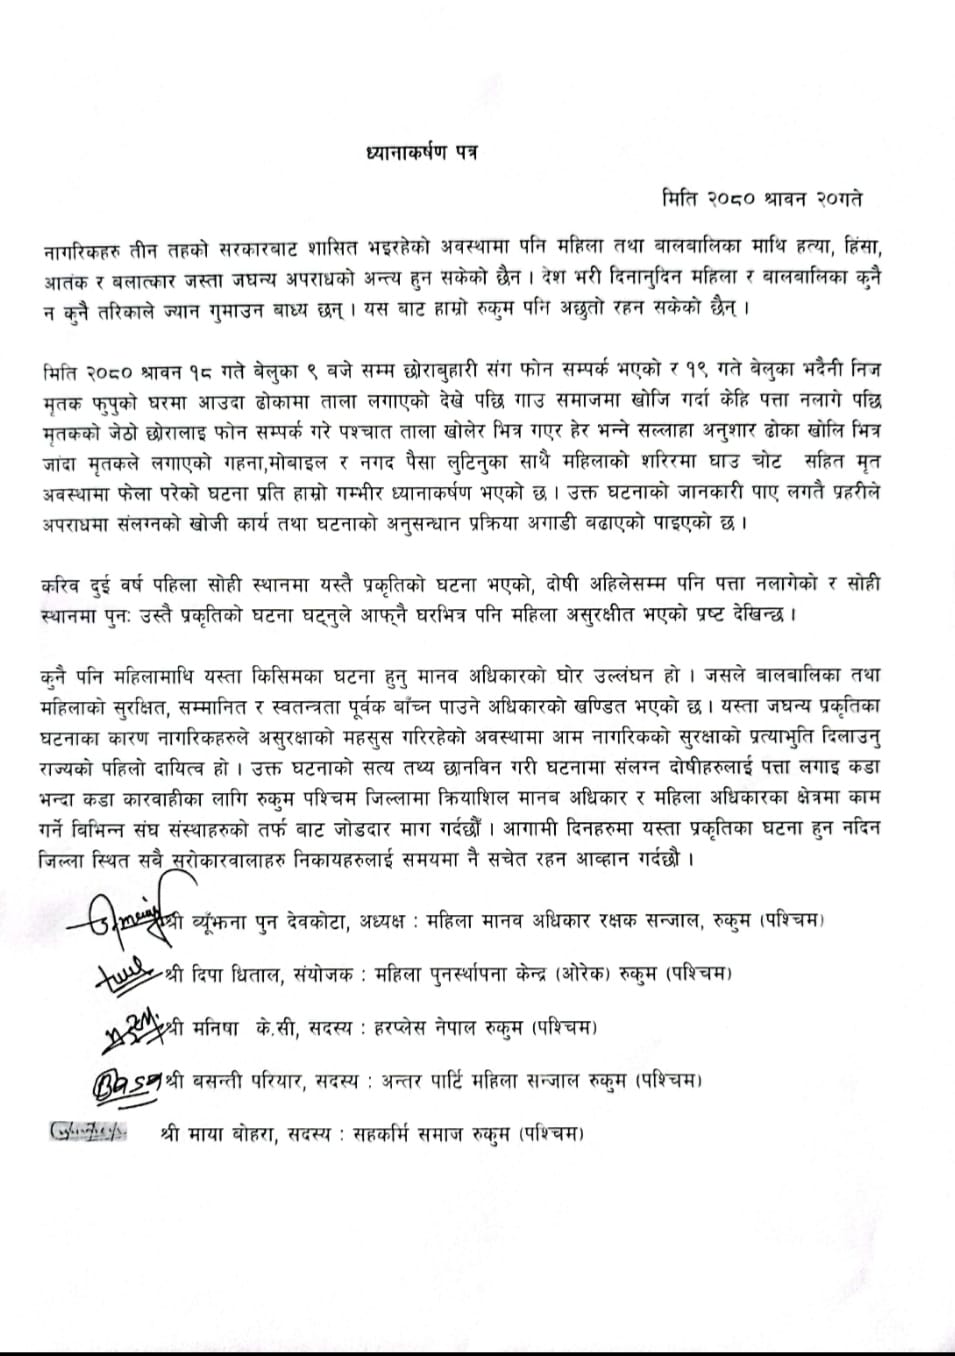 ध्यानाकर्षण पत्र
मिति २०८० श्रावन २०गते
नागरिकहरु तीन तहको सरकारबाट शासित भइरहेको अवस्थामा पनि महिला तथा बालबालिका माथि हत्या, हिंसा,
आतंक र बलात्कार जस्ता जघन्य अपराधको अन्त्य हुन सकेको छैन । देश भरी दिनानुदिन महिला र बालबालिका कुनै
न कुनै तरिकाले ज्यान गुमाउन बाध्य छन् । यस बाट हाम्रो रुकुम पनि अछुतो रहन सकेको छैन् ।
मिति २०८० श्रावन १८ गते बेलुका ९ बजे सम्म छोराबुहारी संग फोन सम्पर्क भएको र १९ गते बेलुका भदैनी निज
मृतक फुपुको घरमा आउदा ढोकामा ताला लगाएको देखे पछि गाउ समाजमा खोजि गर्दा केहि पत्ता नलागे पछि
मृतकको जेठो छोरालाइ फोन सम्पर्क गरे पश्चात ताला खोलेर भित्र गएर हेर भन्ने सल्लाहा अनुशार ढोका खोलि भित्र
जांदा मृतकले लगाएको गहना,मोबाइल र नगद पैसा लुटिनुका साथै महिलाको शरिरमा घाउ चोट सहित मृत
अवस्थामा फेला परेको घटना प्रति हाम्रो गम्भीर ध्यानाकर्षण भएको छ । उक्त घटनाको जानकारी पाए लगतै प्रहरीले
अपराधमा संलग्नको खोजी कार्य तथा घटनाको अनुसन्धान प्रक्रिया अगाडी बढाएको पाइएको छ ।
करिव दुई वर्ष पहिला सोही स्थानमा यस्तै प्रकृतिको घटना भएको, दोषी अहिलेसम्म पनि पत्ता नलागेको र सोही
स्थानमा पुनः उस्तै प्रकृतिको घटना घट्नुले आफ्नै घरभित्र पनि महिला असुरक्षीत भएको प्रष्ट देखिन्छ ।
कुनै पनि महिलामाथि यस्ता किसिमका घटना हुनु मानव अधिकारको घोर उल्लंघन हो । जसले बालबालिका तथा
महिलाको सुरक्षित, सम्मानित र स्वतन्त्रता पूर्वक बाँच्न पाउने अधिकारको खण्डित भएको छ । यस्ता जघन्य प्रकृतिका
घटनाका कारण नागरिकहरुले असुरक्षाको महसुस गरिरहेको अवस्थामा आम नागरिकको सुरक्षाको प्रत्याभुति दिलाउनु
राज्यको पहिलो दायित्व हो । उक्त घटनाको सत्य तथ्य छानविन गरी घटनामा संलग्न दोषीहरुलाई पत्ता लगाइ कडा
भन्दा कडा कारवाहीका लागि रुकुम पश्चिम जिल्लामा क्रियाशिल मानब अधिकार र महिला अधिकारका क्षेत्रमा काम
गर्ने बिभिन्न संघ संस्थाहरुको तर्फ बाट जोडदार माग गर्दछौं । आगामी दिनहरुमा यस्ता प्रकृतिका घटना हुन नदिन
जिल्ला स्थित सबै सरोकारवालाहरु निकायहरुलाई समयमा नै सचेत रहन आव्हान गर्दछौ ।
श्री ब्यूँझना पुन देवकोटा, अध्यक्ष : महिला मानव अधिकार रक्षक सन्जाल, रुकुम (पश्चिम)
श्री दिपा धिताल, संयोजक : महिला पुनर्स्थापना केन्द्र (ओरेक) रुकुम (पश्चिम)
श्री मनिषा के.सी, सदस्य : हरप्लेस नेपाल रुकुम (पश्चिम)
श्री बसन्ती परियार, सदस्य : अन्तर पार्टि महिला सन्जाल रुकुम (पश्चिम)
श्री माया बोहरा, सदस्य : सहकर्मि समाज रुकुम (पश्चिम)